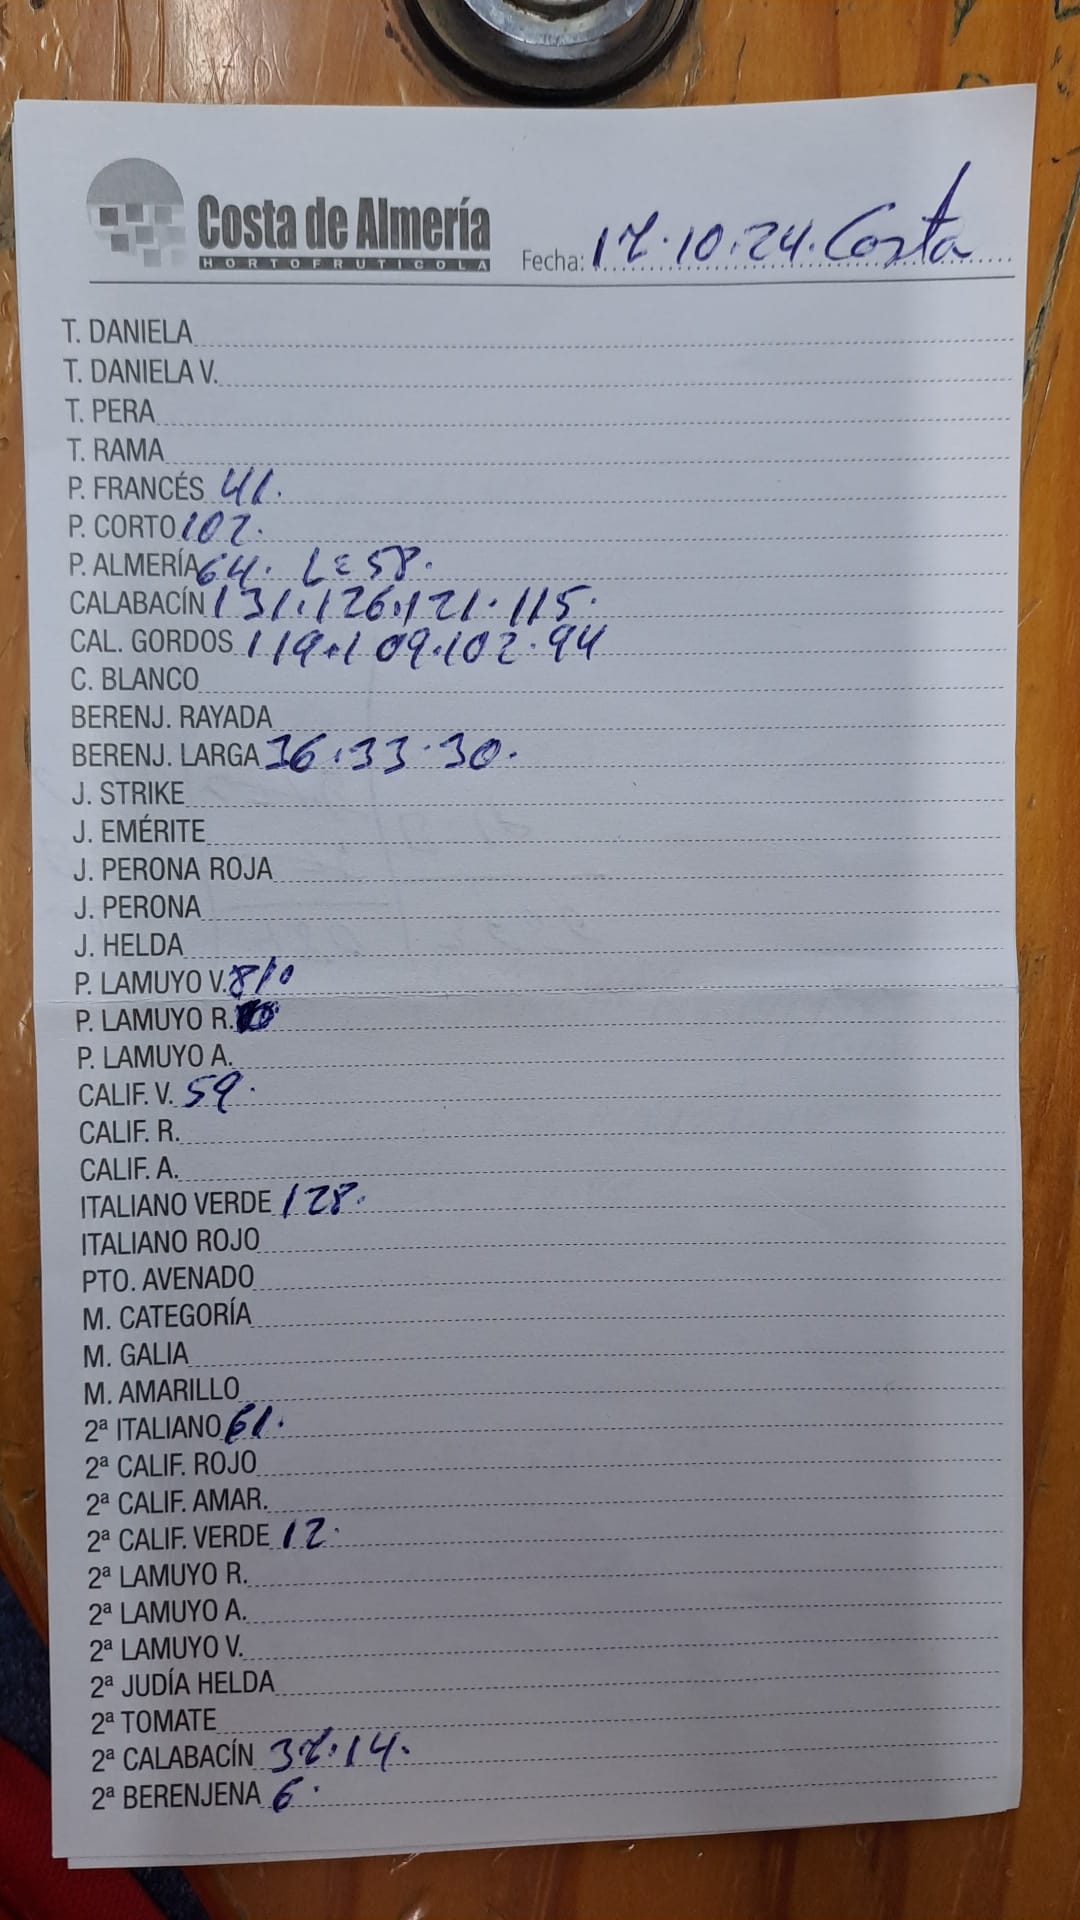 Costa de Almería
HORTOFRUTICOLA
Fecha: 17.10.24. Costa
T. DANIELA
T. DANIELA V.
T. PERA
T. RAMA
P. FRANCÉS 41.
P. CORTO 102.
P. ALMERÍA 64. LE 58.
CALABACÍN 131.126.121.115.
CAL. GORDOS 119.109.102.94
C. BLANCO
BERENJ. RAYADA
BERENJ. LARGA 36.33.30.
J. STRIKE
J. EMÉRITE
J. PERONA ROJA
J. PERONA
J. HELDA
P. LAMUYO V.
P. LAMUYO R.
P. LAMUYO A.
CALIF. V. 59.
CALIF. R.
CALIF. A.
ITALIANO VERDE 128.
ITALIANO ROJO
PTO. AVENADO
M. CATEGORÍA
M. GALIA
M. AMARILLO
2ª ITALIANO 61.
2ª CALIF. ROJO
2ª CALIF. AMAR.
2ª CALIF. VERDE 12.
2ª LAMUYO R.
2ª LAMUYO A.
2ª LAMUYO V.
2ª JUDÍA HELDA
2ª TOMATE
2ª CALABACÍN 37.14.
2ª BERENJENA 6.